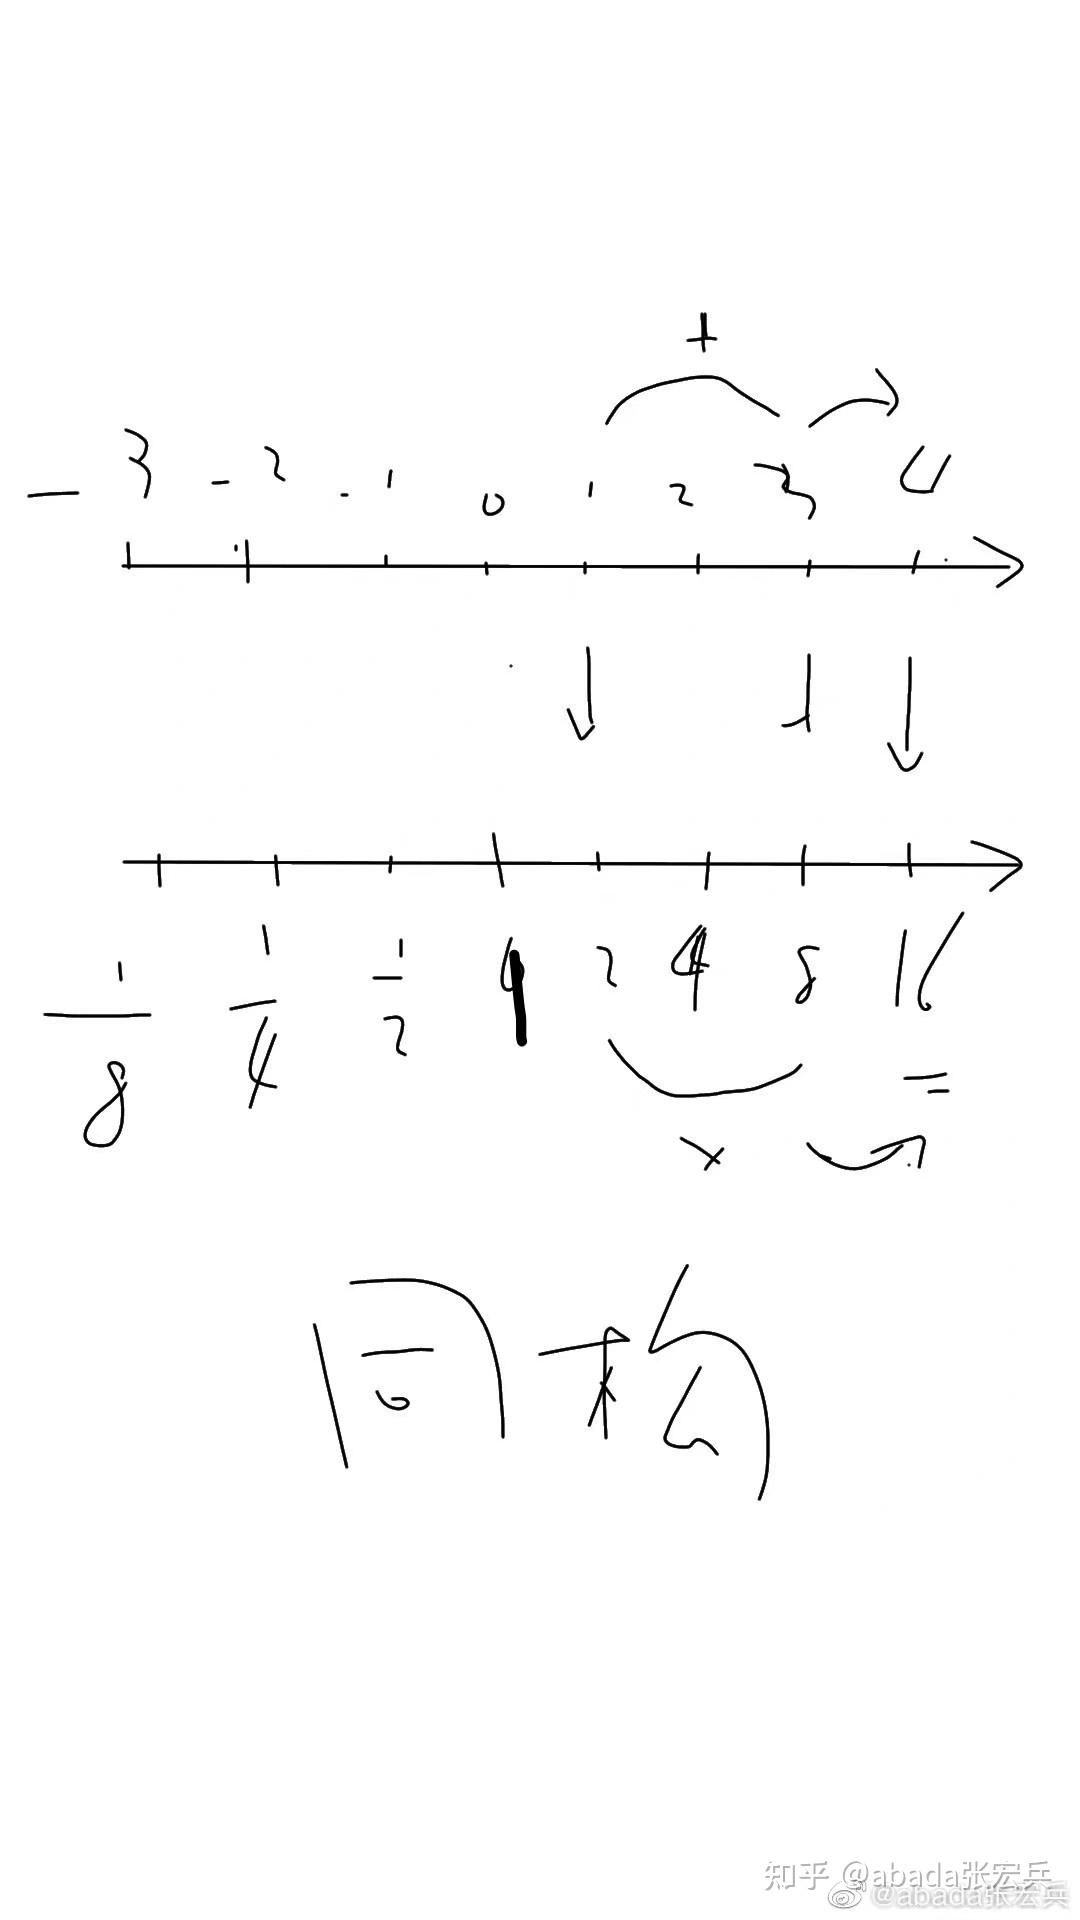 +
-3 -2 -1 0 1 2 3 4
1/8 1/4 1/2 1 2 4 8 16
=
×
同构
知乎 @abada张宏兵
@abada张宏兵